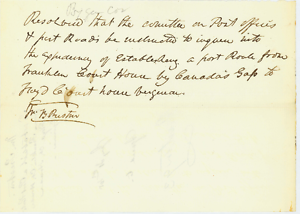 Resolved that the comittee on Post offices
& post Roads be instructed to inquire into
the expediency of Establishing a post Route from
Franklin Court House by Canada's Gap to
Floyd Court house Virginia
Wm B Preston